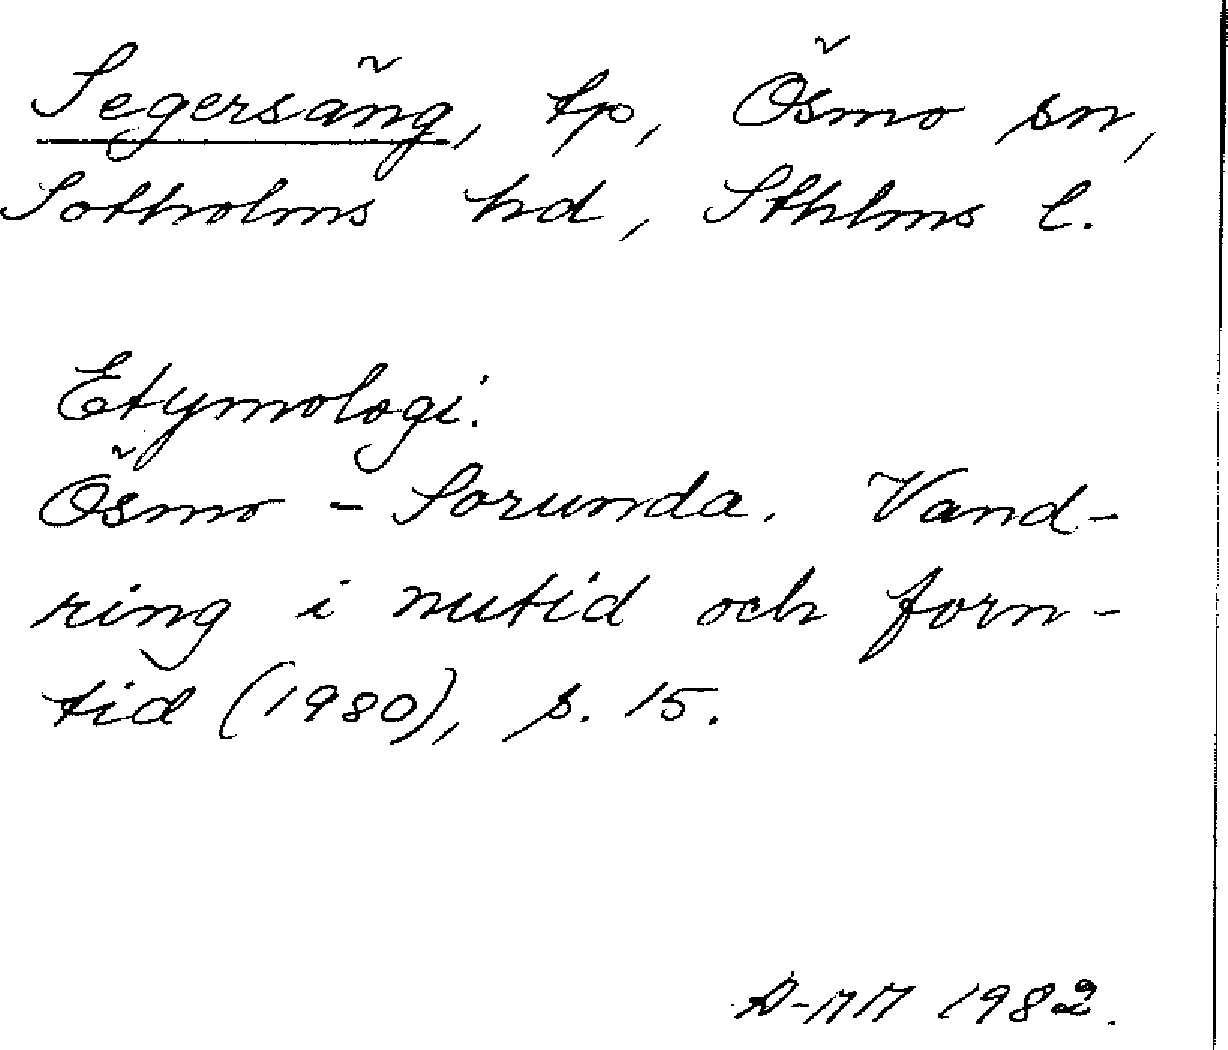 Segersäng, tp, Ösmo sn,
Sotholms hd, Sthlms l.
Etymologi.
Ösmo - Sorunda. Vand-
ring i nutid och forn-
tid (1980), s. 15.
A-MM 1982.